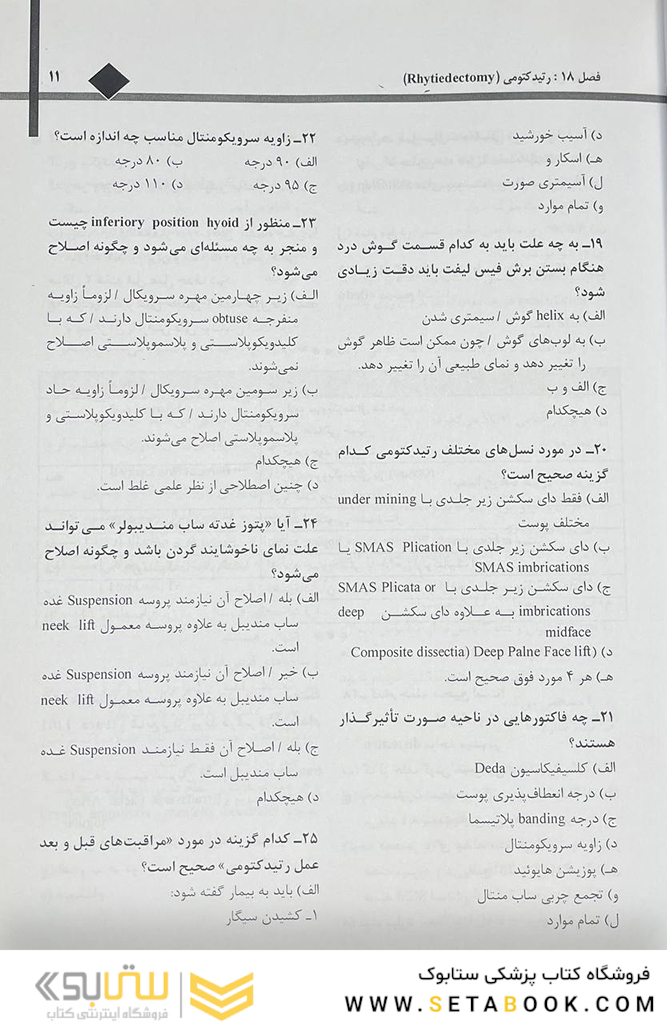 فصل ۱۸ : رتیدکتومی (Rhytiedectomy)
۱۱
د) آسیب خورشید
هـ) اسکار و
ل) آسیمتری صورت
و) تمام موارد
۱۹ـ به چه علت باید به کدام قسمت گوش درد
هنگام بستن برش فیس لیفت باید دقت زیادی
شود؟
الف) به helix گوش / سیمتری شدن
ب) به لوب‌های گوش / چون ممکن است ظاهر گوش
را تغییر دهد و نمای طبیعی آن را تغییر دهد.
ج) الف و ب
د) هیچکدام
۲۰ـ در مورد نسل‌های مختلف رتیدکتومی کدام
گزینه صحیح است؟
الف) فقط دای سکشن زیر جلدی با under mining
مختلف پوست
ب) دای سکشن زیر جلدی با SMAS Plication یا
SMAS imbrications
ج) دای سکشن زیـر جلـدی بـا SMAS Plicata or
imbrications بـه عـلاوه دای سکشـن deep
midface
د) (Composite dissectia) Deep Palne Face lift
هـ) هر ۴ مورد فوق صحیح است.
۲۱ـ چه فاکتورهایی در ناحیه صورت تأثیرگذار
هستند؟
الف) کلسیفیکاسیون Deda
ب) درجه انعطاف‌پذیری پوست
ج) درجه banding پلاتیسما
د) زاویه سرویکومنتال
هـ) پوزیشن هایوئید
و) تجمع چربی ساب منتال
ل) تمام موارد
۲۲ـ زاویه سرویکومنتال مناسب چه اندازه است؟
الف) ۹۰ درجه ب) ۸۰ درجه
ج) ۹۵ درجه د) ۱۱۰ درجه
۲۳ـ منظور از inferiory position hyoid چیست
و منجر به چه مسئله‌ای می‌شود و چگونه اصلاح
می‌شود؟
الـف) زیـر چهـارمین مهـره سـرویکال / لزومـاً زاویـه
منفرجـه obtuse سـرویکومنتال دارنـد / کـه بـا
کلیدویکوپلاسـتی و پلاسموپلاسـتی اصـلاح
نمی‌شوند.
ب) زیر سومین مهـره سـرویکال / لزومـاً زاویـه حـاد
سرویکومنتال دارنـد / کـه بـا کلیدویکوپلاسـتی و
پلاسموپلاستی اصلاح می‌شوند.
ج) هیچکدام
د) چنین اصطلاحی از نظر علمی غلط است.
۲۴ـ آیا «پتوز غدته ساب مندیبولر» می تواند
علت نمای ناخوشایند گردن باشد و چگونه اصلاح
می‌شود؟
الف) بله / اصلاح آن نیازمند پروسه Suspension غده
ساب مندیبل به علاوه پروسه معمـول neek lift
است.
ب) خیر / اصلاح آن نیازمند پروسه Suspension غده
ساب مندیبل به علاوه پروسـه معمـول neek lift
است.
ج) بله / اصـلاح آن فقـط نیازمنـد Suspension غـده
ساب مندیبل است.
د) هیچکدام
۲۵ـ کدام گزینه در مورد «مراقبت‌های قبل و بعد
عمل رتیدکتومی» صحیح است؟
الف) باید به بیمار گفته شود:
۱ـ کشیدن سیگار
فروشگاه کتاب پزشکی ستابوک
WWW.SETABOOK.COM
ستابوک
فروشگاه اینترنتی کتاب